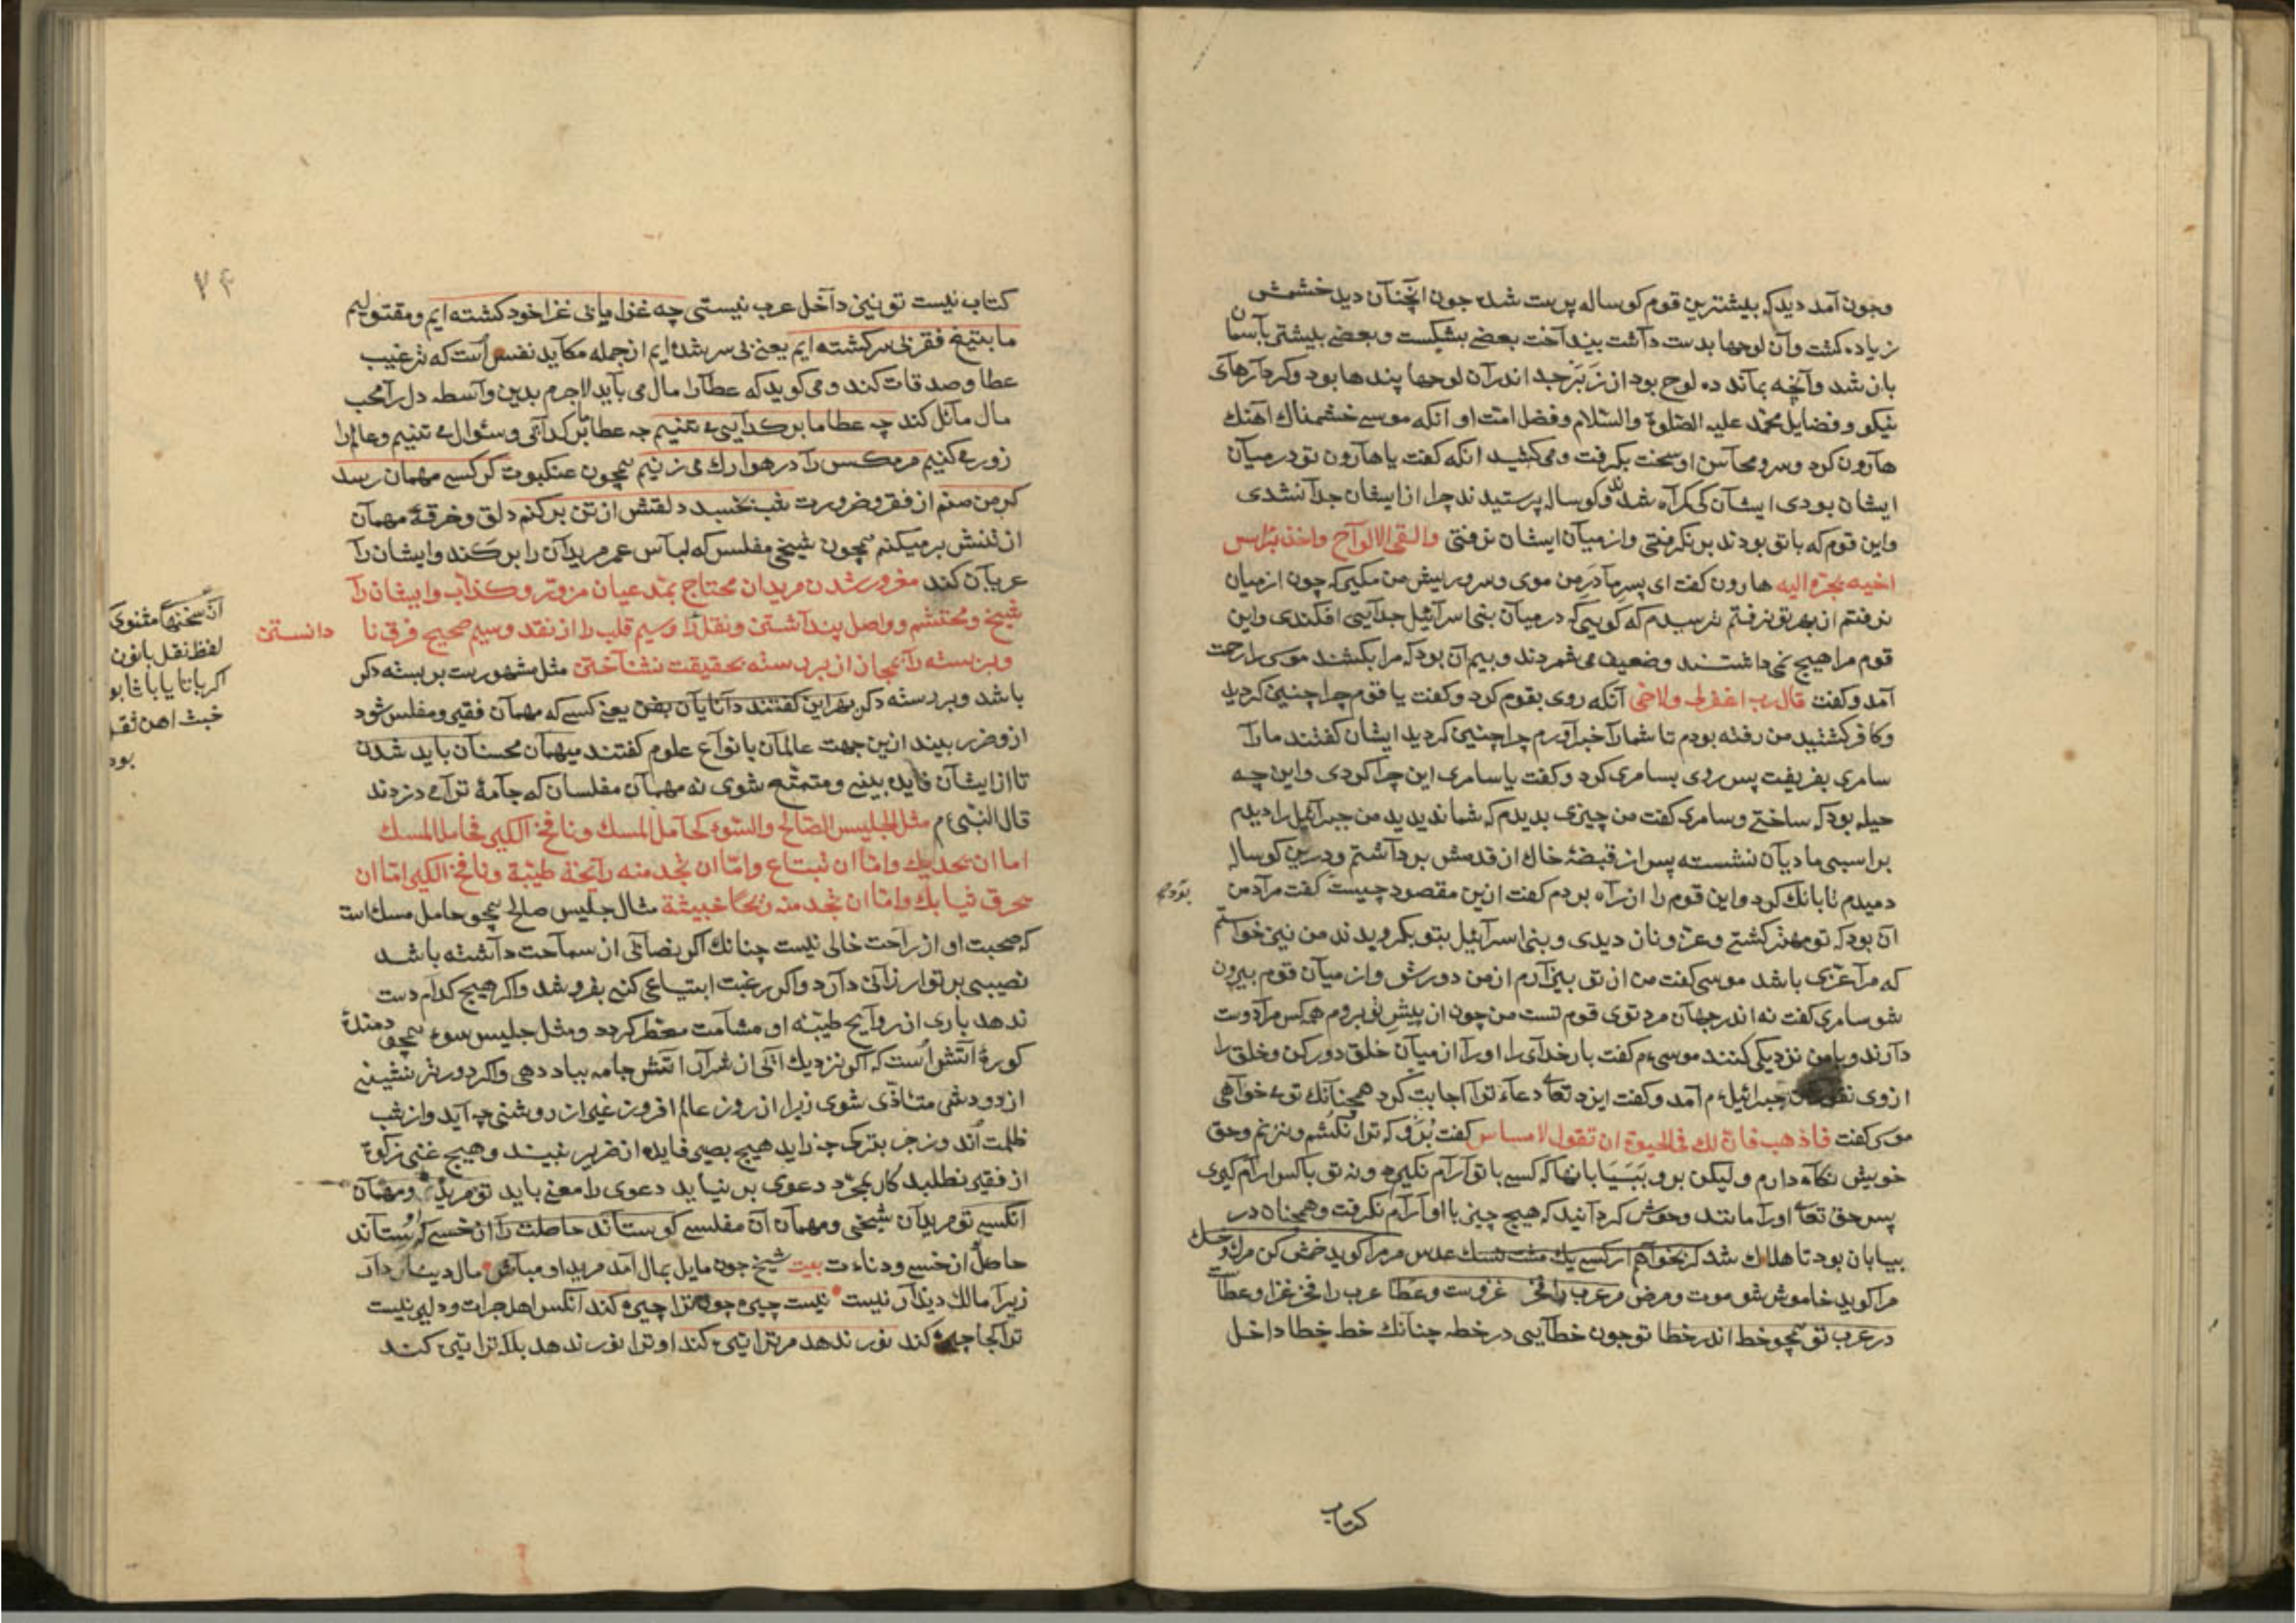 وجون آمد دید که بیشترین قوم کوساله پرست شده جون آنچنان دید خشمش
زیاده کشت وآن لوحها بدست داشت بینداخت بعضے بشکست وبعضے بیشتر بآسمان
باز شد وآنچه بماند ده لوح بود از زبرجد اندر آن لوحها پندها بود وکردارهای
نیکو وفضایل محمد علیه الصلوة والسلام وفضل امت او انکه موسے خشمناك آهنك
هارون کرد وسر ومحاسن او سخت بکرفت ومی کشید انکه کفت یا هارون تو در میان
ایشان بودی ایشان کی کمراه شدند وکوساله پرستیدند چرا از ایشان جدا نشدی
واین قوم که با تو بودند بر نکرفتی واز میان ایشان نرفتی والقی الالواح واخذ برأس
اخیه یجره الیه هارون کفت ای پسر مادر من موی وسر وریش من مکیر که چون از میان
نرفتم از بهر تو نرفتم ترسیدم که کویی که در میان بنی اسرائیل جدایی افکندی واین
قوم مرا هیچ نمی داشتند وضعیف می شمردند وبیم آن بود که مرا بکشند موسی را رحمت
آمد وکفت قال رب اغفرلی ولاخی آنکه روی بقوم کرد وکفت یا قوم چرا چنین کردید
وکافر کشتید من رفته بودم تا شما را خبر آورم چرا چنین کردید ایشان کفتند ما را
سامری بفریفت پس روی بسامری کرد وکفت یا سامری این چرا کردی واین چه
حیله بود که ساختے وسامری کفت من چیزی بدیدم که شما ندیدید من جبرائیل را دیدم
بر اسبی مادیان نشسته پس از قبضهٔ خاك از قدمش برداشتم ودر این کوساله
دمیدم تا بانك کرد واین قوم را از راه بردم کفت ازین مقصود چیست کفت مراد من
آن بود که تو مهتر کشتے وعز ونان دیدی وبنی اسرائیل بتو بکرویدند من نیز خواستم
که مرا عزی باشد موسی کفت من از تو بیزارم از من دور شو واز میان قوم بیرون
شو سامری کفت نه اندر جهان مرد توی قوم تست من چون از پیش تو بروم همه کس مرا دوست
دارند وبا من نزدیکی کنند موسی م کفت بار خدای را او را از میان خلق دور کن وخلق را
از وی جبرائیل م آمد وکفت ایزد تعا دعاء ترا اجابت کرد همچنانك توء خواهی
موسی کفت فاذهب فان لك فی الحیوة ان تقول لا مساس کفت برو که ترا نکشم ونزنم وحق
خویش نکاه دارم ولیکن برو ببیابانها که کسے با تو آرام نکیرد ونه تو با کس آرام کیری
پس حق تعا او را مانند وحوش کردانید که هیچ چیز با او آرام نکرفت وهمچنان در
بیابان بود تا هلاك شد کر بخواهم از کسے یك مشت نسك عدس مر مرا کوید خمش کن مرك وجسك
مرا کوید خاموش شو موت ومرض مر عرب را فخر غزوست وعطا عرب را فخر غزا وعطاست
در عرب تو همچو خط اندر خطا تو جون خطایی در خطه چنانك خط خطا داخل
کتاب
۷۴
کتاب نیست تو نیز داخل عرب نیستی چه غزا ما بی غزا خود کشته ایم ومقتولیم
ما بتیغ فقر بی سر کشته ایم یعنے بی سر شده ایم از جمله مکاید نفس است که ترغیب
عطا وصدقات کند ومی کوید که عطا را مال می باید لاجرم بدین واسطه دل را محب
مال مائل کند چه عطا ما بر کدایی می تنیم چه عطا ما بر کدائی وسئوال می تنیم وعالم را
زور می کنیم مر مکس را در هوا رك می زنیم همچون عنکبوت کر کسے مهمان رسد
کر من منم از فقر وضرورت شب بخسبد دلقش از تن برکنم دلق وخرقهٔ مهمان
از تنش برمیکنم همچون شیخی مفلس که لباس عمر مریدان را برکند وایشان را
عریان کند مغرور شدن مریدان محتاج بمدعیان مزور وکذاب وایشان را
شیخ ومحتشم وواصل پنداشتن ونقل را وسیم قلب را از نقد وسیم صحیح فرق نا دانستن
وبر بسته را بمجاز از بر رسته بحقیقت نشناختن مثل مشهورست بر بسته دکر
باشد وبر رسته دکر بهر این کفتند دانایان بفن یعنے کسے که مهمان فقیر ومفلس شود
ازو ضرر بیند ازین جهت عالمان بانواع علوم کفتند میهمان محسنان باید شدن
تا از ایشان فایده بینے ومتمتع شوی نه مهمان مفلسان که جامهٔ ترا می دزدند
قال النبی م مثل الجلیس الصالح والسوء کحامل المسك ونافخ الکیر فحامل المسك
اما ان یحذیك واما ان تبتاع واما ان تجد منه رائحة طیبة ونافخ الکیر اما ان
یحرق ثیابك واما ان تجد منه ریحا خبیثة مثال جلیس صالح همچو حامل مسك است
که صحبت او از راحت خالی نیست چنانك اکر بضاعتی از سماحت داشته باشد
نصیبی بر تو ارزانی دارد واکر رغبت ابتیاعی کنے بفروشد واکر هیچ کدام دست
ندهد باری از روایح طیبه او مشامت معطر کردد ومثل جلیس سوء همچو دمندهٔ
کورهٔ آتش است که اکر نزدیك آئی از شرار آتش جامه بباد دهی واکر دورتر نشینے
از دودش متأذی شوی زیرا از روز عالم افروز غیر از روشنی چه آید واز شب
ظلمت اندوز جز بترك چه زاید هیچ بصیر فایده از ضریر نبیند وهیچ غنی زکوة
از فقیر نطلبد کار بمجرد دعوی بر نیاید دعوی را معنے باید تو مرید ومهمان
آنکسے تو مریدان شیخی ومهمان آن مفلسے کو ستاند حاصلت را از خسے که او ستاند
حاصل از خسے ودناءت بیت شیخ جون مایل بمال آمد مرید او مباش مال دینار دار
زیرا مالك دینار نیست نیست چیره جون ترا چیره کند آنکس اهل جرات ودلیر نیست
ترا کجا چیره کند نور ندهد مر ترا تیره کند او ترا نور ندهد بلکه ترا تیره کند
آن سخنها مثنوی
لفظ نقل بانون
اکر باتا یا با ثا بو
خبث اهن ثقل
بود